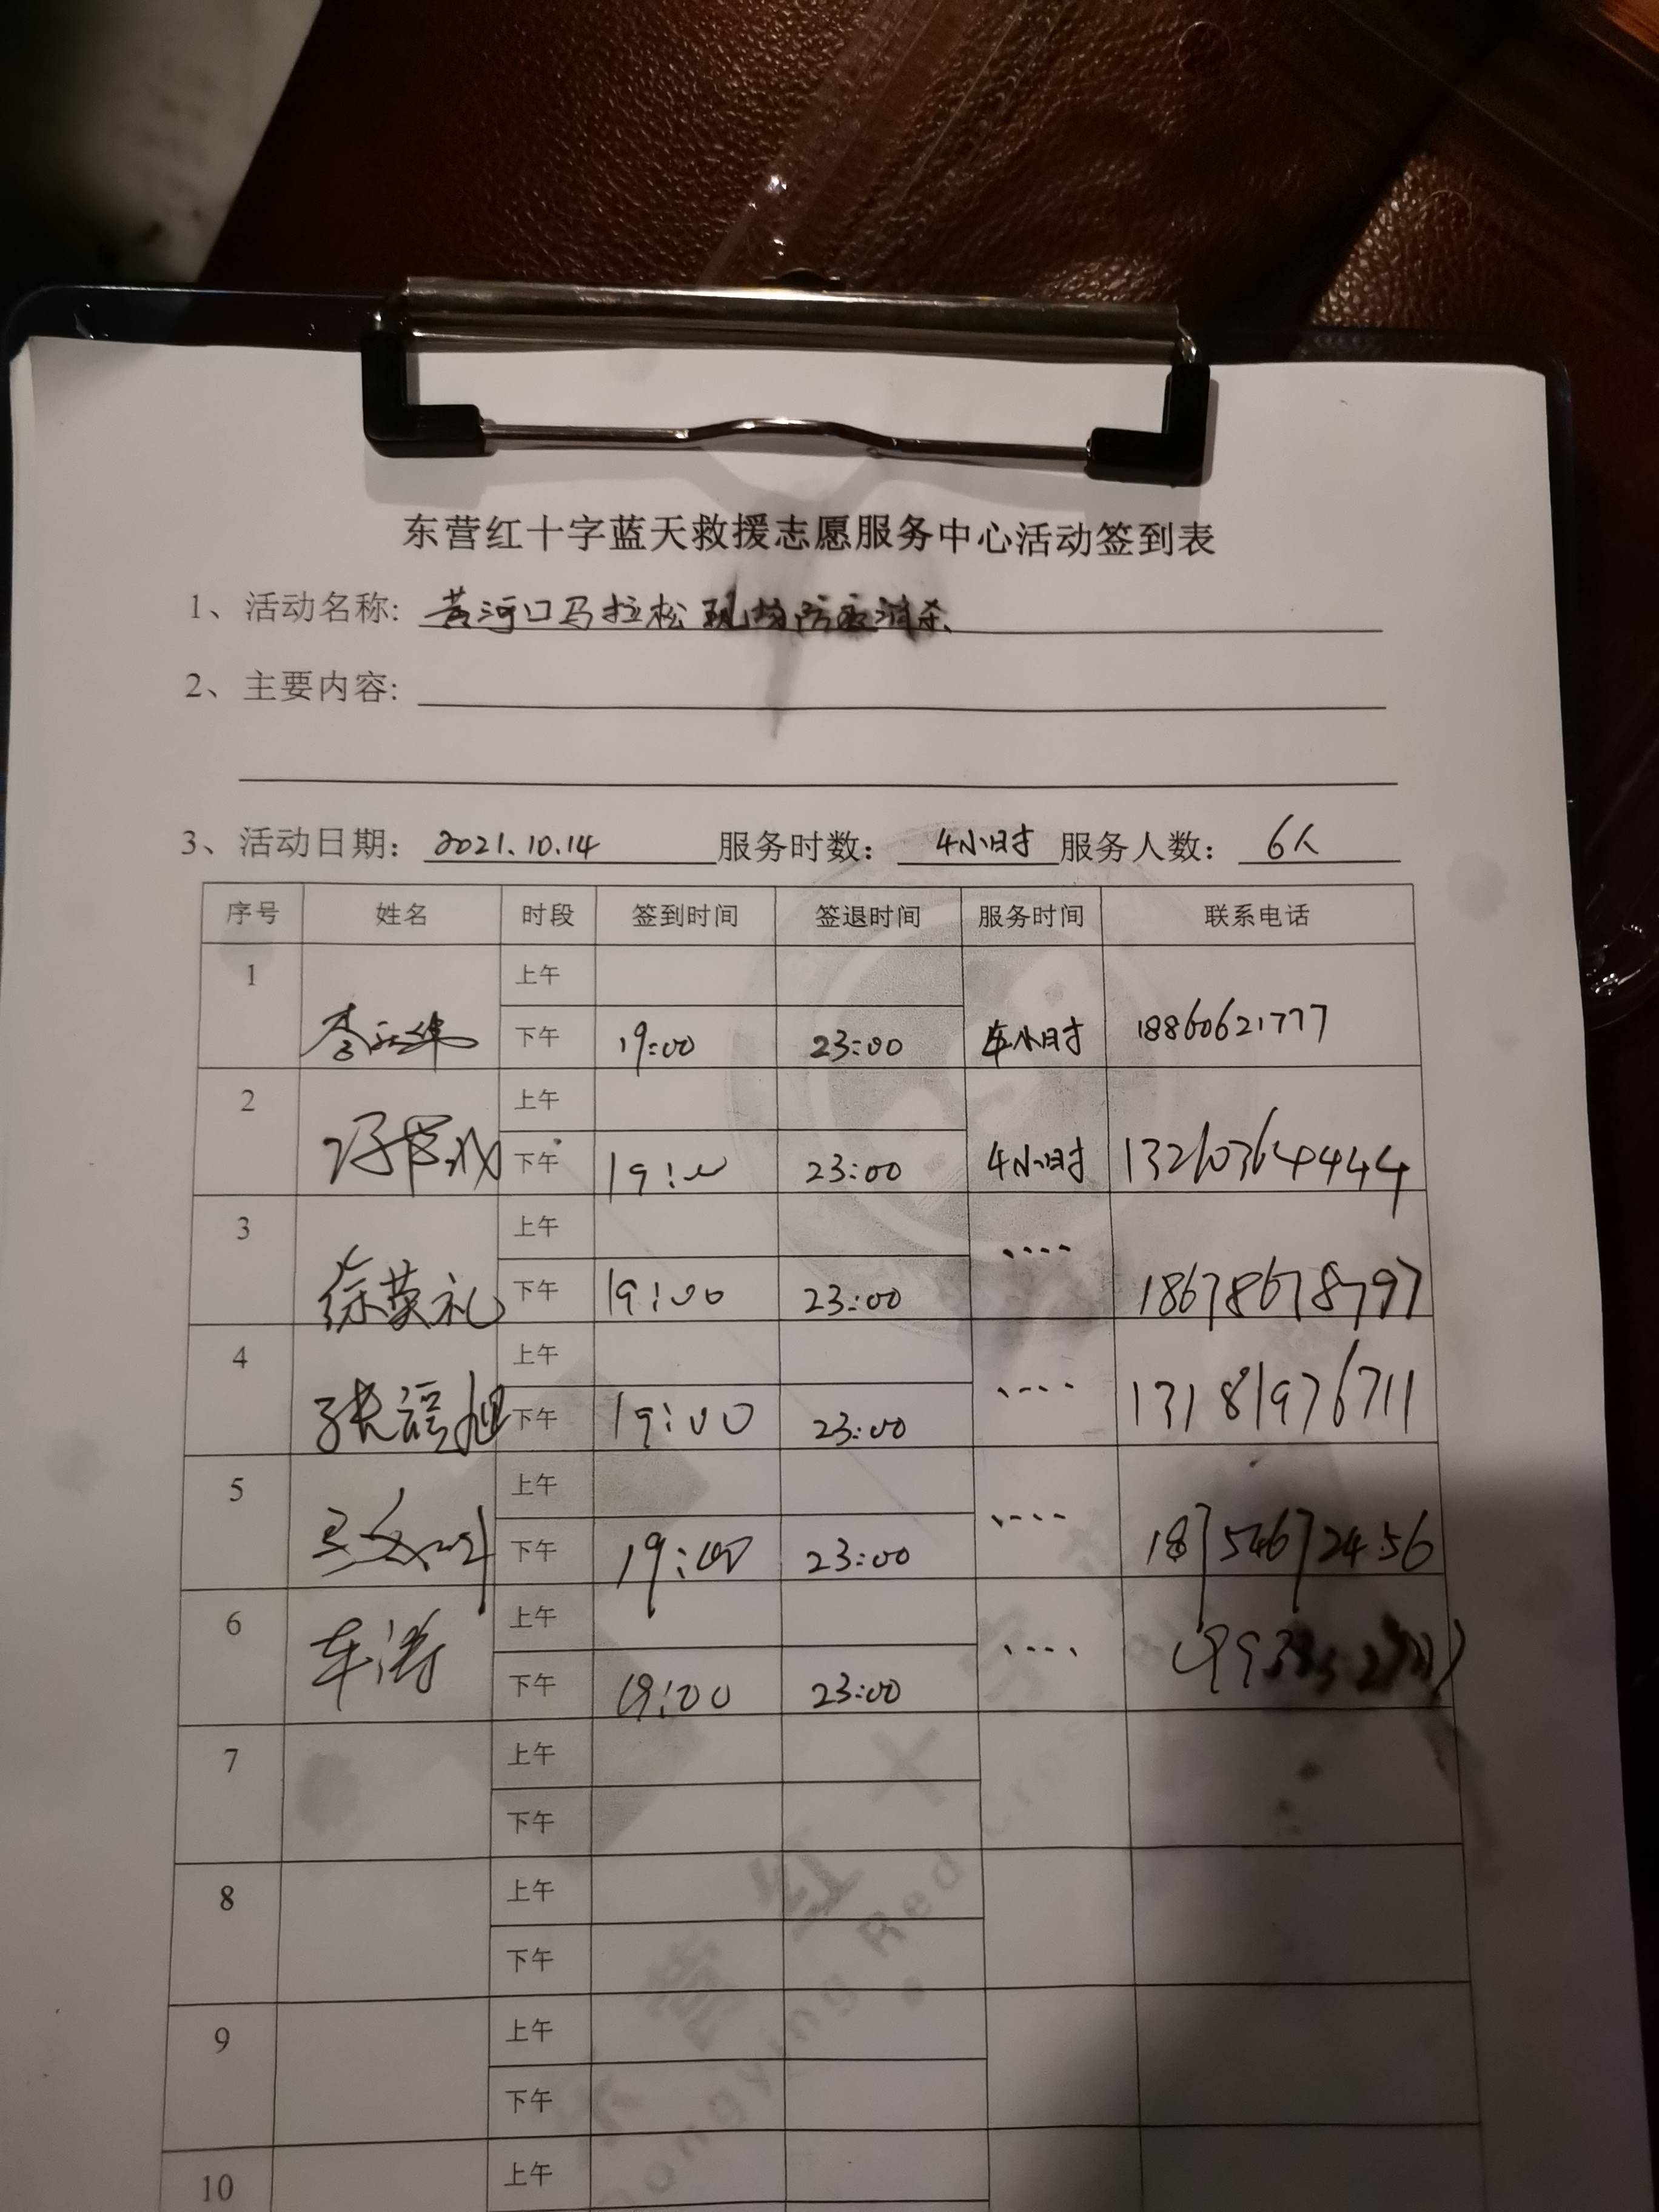 东营红十字蓝天救援志愿服务中心活动签到表
1、活动名称: 黄河口马拉松现场防疫消杀
2、主要内容:
3、活动日期: 2021.10.14 服务时数: 4小时 服务人数: 6人
序号 姓名 时段 签到时间 签退时间 服务时间 联系电话
1 上午
下午 19:00 23:00 4小时 18860621777
2 上午
下午 19:00 23:00 4小时 13210364444
3 徐荣礼 上午
下午 19:00 23:00 18678678797
4 上午
下午 19:00 23:00 13181976711
5 上午
下午 19:00 23:00 18754672456
6 车涛 上午
下午 19:00 23:00
7 上午
下午
8 上午
下午
9 上午
下午
10 上午
东营红十字蓝
Dongying Red Cross Blu